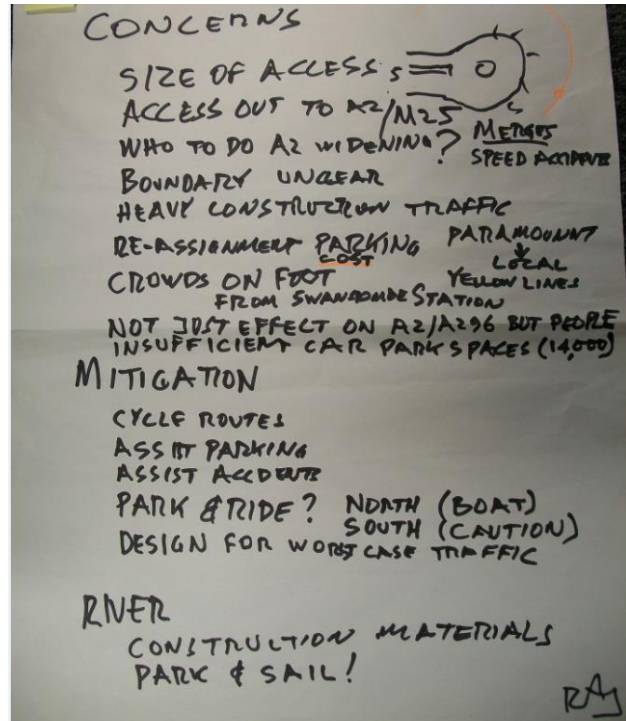 CONCERNS
SIZE OF ACCESS
ACCESS OUT TO A2/M25
WHO TO DO A2 WIDENING? MERGES
SPEED ACCIDENTS
BOUNDARY UNCLEAR
HEAVY CONSTRUCTION TRAFFIC
RE-ASSIGNMENT PARKING PARAMOUNT
COST LOCAL
CROWDS ON FOOT YELLOW LINES
FROM SWANSCOMBE STATION
NOT JUST EFFECT ON A2/A296 BUT PEOPLE
INSUFFICIENT CAR PARK SPACES (14,000)
MITIGATION
CYCLE ROUTES
ASSIST PARKING
ASSIST ACCIDENTS
PARK & RIDE? NORTH (BOAT)
SOUTH (CAUTION)
DESIGN FOR WORST CASE TRAFFIC
RIVER
CONSTRUCTION MATERIALS
PARK & SAIL!